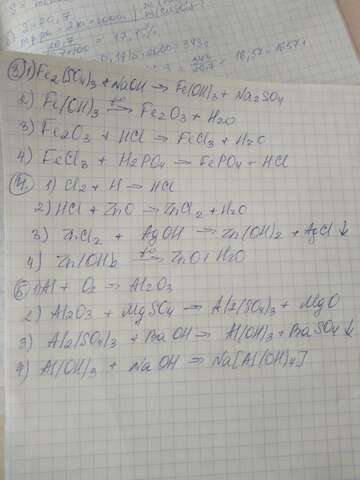 ③ 1) Fe₂(SO₄)₃ + NaOH → Fe(OH)₃ + Na₂SO₄
2) Fe(OH)₃ →(t°) Fe₂O₃ + H₂O
3) Fe₂O₃ + HCl → FeCl₃ + H₂O
4) FeCl₃ + H₂PO₄ → FePO₄ + HCl
④ 1) Cl₂ + H → HCl
2) HCl + ZnO → ZnCl₂ + H₂O
3) ZnCl₂ + AgOH → Zn(OH)₂ + AgCl ↓
4) Zn(OH)₂ →(t°) ZnO + H₂O
⑤ 1) Al + O₂ → Al₂O₃
2) Al₂O₃ + MgSO₄ → Al₂(SO₄)₃ + MgO
3) Al₂(SO₄)₃ + BaOH → Al(OH)₃ + BaSO₄ ↓
4) Al(OH)₃ + NaOH → Na[Al(OH)₄]